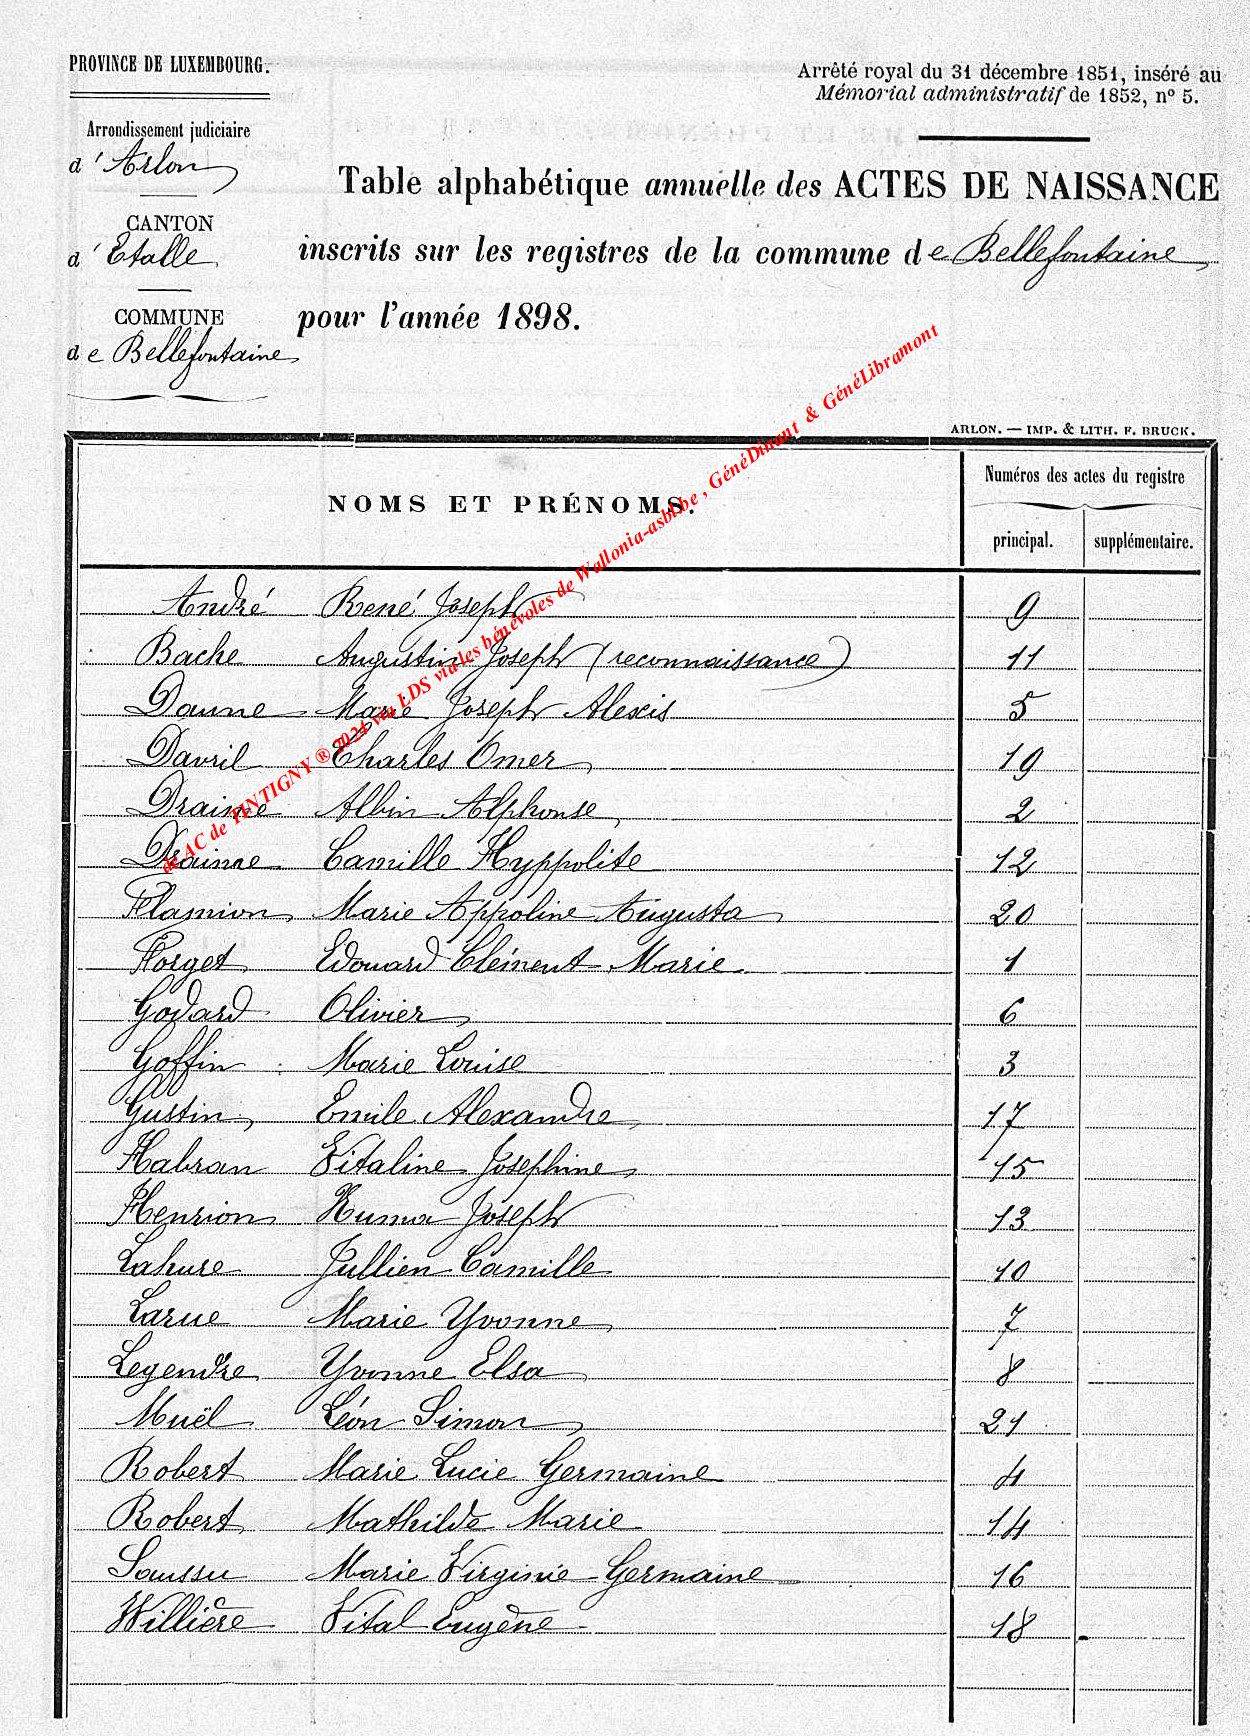 PROVINCE DE LUXEMBOURG.
Arrêté royal du 31 décembre 1851, inséré au
Mémorial administratif de 1852, nº 5.
Arrondissement judiciaire
d'Arlon
CANTON
d'Etalle
COMMUNE
de Bellefontaine
Table alphabétique annuelle des ACTES DE NAISSANCE
inscrits sur les registres de la commune de Bellefontaine
pour l'année 1898.
ARLON. — IMP. & LITH. F. BRUCK.
de AC de TINTIGNY ® 2021 via LDS via les bénévoles de Wallonia-asbl.be , GénéDinant & GénéLibramont
NOMS ET PRÉNOMS.
Numéros des actes du registre
principal. supplémentaire.
André René Joseph 9
Bache Augustin Joseph (reconnaissance) 11
Daune Marie Joseph Alexis 5
Davril Charles Omer 19
Drainne Albin Alphonse 2
Drainne Camille Hyppolite 12
Flamion Marie Appoline Augusta 20
Forget Edouard Clément Marie 1
Godard Olivier 6
Goffin Marie Louise 3
Gustin Emile Alexandre 17
Habran Vitaline Joséphine 15
Henrion Numa Joseph 13
Lahure Jullien Camille 10
Larue Marie Yvonne 7
Legendre Yvonne Elsa 8
Muël Léon Simon 21
Robert Marie Lucie Germaine 4
Robert Mathilde Marie 14
Saussu Marie Virginie Germaine 16
Willière Vital Eugène 18